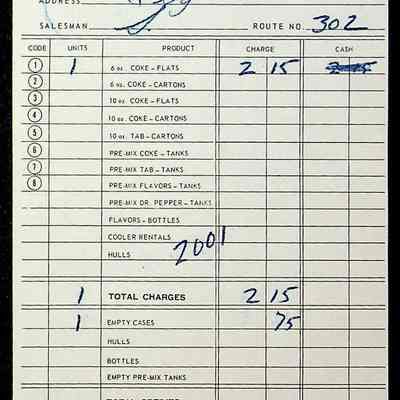 ADDRESS
SALESMAN ROUTE NO. 302
CODE UNITS PRODUCT CHARGE CASH
1 1 6 oz. COKE – FLATS 2 15 2 15
2 6 oz. COKE – CARTONS
3 10 oz. COKE – FLATS
4 10 oz. COKE – CARTONS
5 10 oz. TAB – CARTONS
6 PRE-MIX COKE – TANKS
7 PRE-MIX TAB – TANKS
8 PRE-MIX FLAVORS – TANKS
PRE-MIX DR. PEPPER – TANKS
FLAVORS – BOTTLES
COOLER RENTALS 2001
HULLS
1 TOTAL CHARGES 2 15
1 EMPTY CASES 75
HULLS
BOTTLES
EMPTY PRE-MIX TANKS